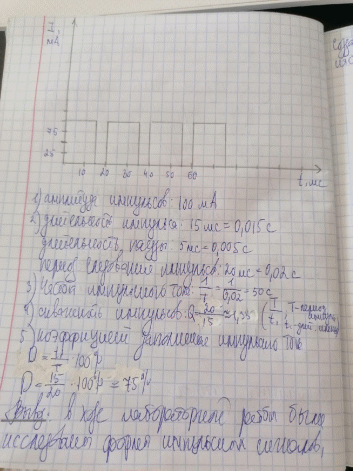 I,
мА
75
25
10 20 30 40 50 60
t, мс
1) амплитуда импульсов: 100 мА
2) длительность импульса: 15 мс = 0,015 с
длительность паузы: 5 мс = 0,005 с
период следования импульса: 20 мс = 0,02 с
3) Частота импульсного тока: 1/T = 1/0,02 = 50 с
4) скважность импульсов: Q = 20/15 ≈ 1,33 (T/t, T - период
5) коэффициент заполнения импульсного тока
D = · 100%
D = 15/20 · 100% = 75%
Вывод: в ходе лабораторной работы были
исследованы формы импульсных сигналов,